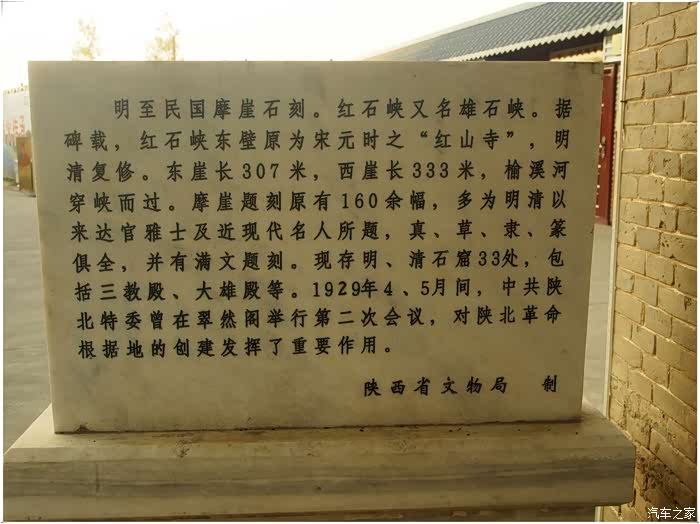 明至民国摩崖石刻。红石峡又名雄石峡。据
碑载，红石峡东壁原为宋元时之“红山寺”，明
清复修。东崖长307米，西崖长333米，榆溪河
穿峡而过。摩崖题刻原有160余幅，多为明清以
来达官雅士及近现代名人所题，真、草、隶、篆
俱全，并有满文题刻。现存明、清石窟33处，包
括三教殿、大雄殿等。1929年4、5月间，中共陕
北特委曾在翠然阁举行第二次会议，对陕北革命
根据地的创建发挥了重要作用。
陕西省文物局 制
汽车之家